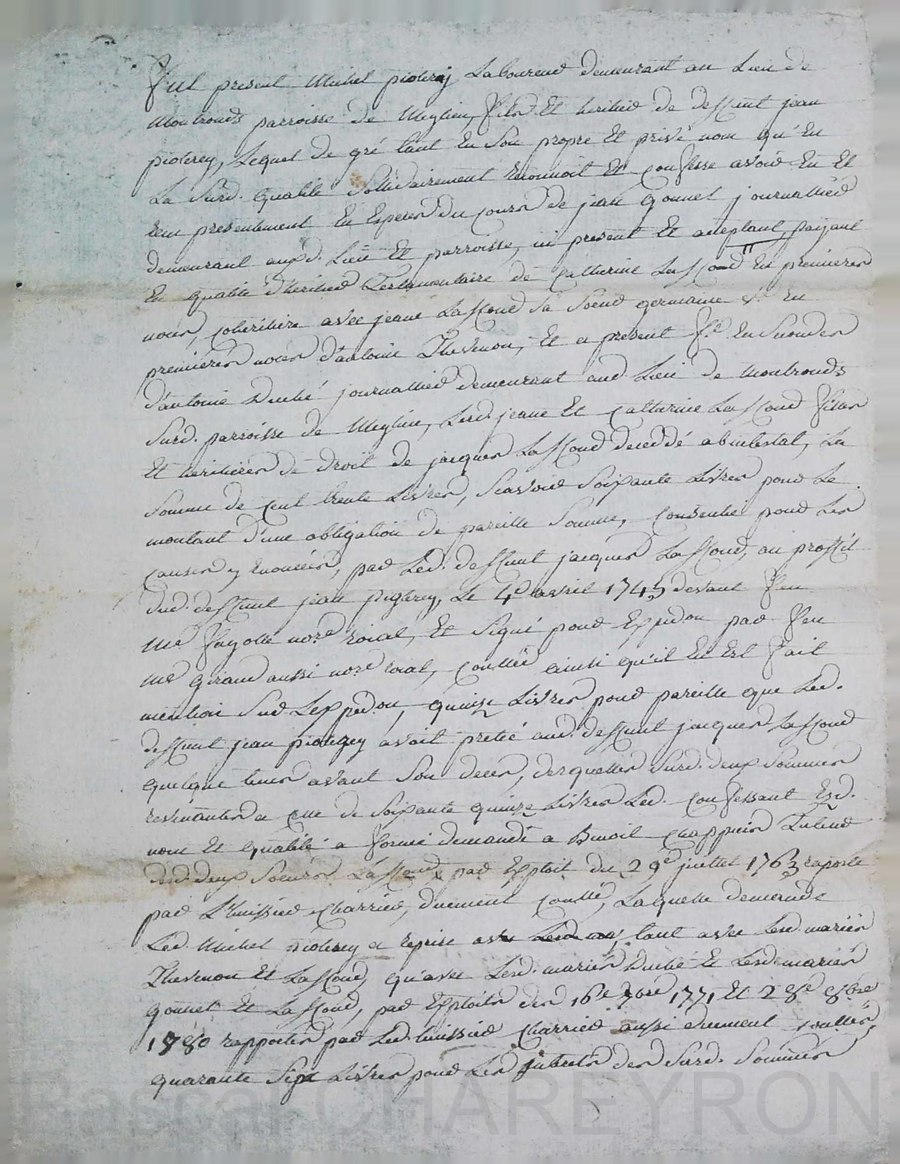 fut present Michel pioterey Laboureur demeurant au Lieu de
Montrouds parroisse de Meylieu, fils Et heritier de deffunt jean
pioterey, Lequel de gré tant En Son propre Et privé nom qu'En
La Surd. qualité Solidairement Reconnoit Et confesse avoir Eu Et
receu presentement En Especes du cours de jean gonnet journallier
demeurant auxd. Lieu Et parroisse, ici present Et acceptant, paiyant
En qualité d'heritier Testamentaire de Catherine Lassond En premieres
noces, cohéritière avec jeane Lassond Sa Soeur germaine En
premieres noces d'antoine Thevenon, Et a present fe. En Secondes
d'antoine Duché journallier demeurant aud. Lieu de Montrouds
Surd. parroisse de Meylieu, Lesd. jeane Et Catherine Lassond filles
Et heritieres de droit de jacques Lassond decedé abintestat, La
Somme de Cent trente Livres, Scavoir Soixante Livres pour Le
montant d'une obligation de pareille Somme, Consentie pour Les
causes y enoncées, par Led. deffunt jacques Lassond, au proffit
dud. deffunt jean pioterey, Le 4e. avril 1745 devant feu
Me fayolle nore. Roial, Et Signé pour Expedon par feu
Me giraud aussi nore. roial, Conttlée ainsi qu'il En Est fait
mention Sur L'expedon, quinze Livres pour pareille que Led.
deffunt jean pioterey avait preté aud. deffunt jacques Lassond
quelque tems avant Son deces, desquelles Surd. deux Sommes
revenantes a celle de Soixante quinze Livres Led. Confessant Esd.
nom Et qualité a formé demande a Benoit Chappuis Tuteur
desd. deux Soeurs Lassond, par Exploit du 29e juillet 1763 raporté
par L'huissier Charrier, duement Conttlé, Laquelle demande
Led. Michel pioterey a reprise tant avec Lesd. mariés
Thevenon Et Lassond, qu'avec Lesd. mariés Duché Et Lesd. mariés
gonnet Et Lassond, par Exploits des 16e 7bre 1771 Et 28e 8bre
1780 rapportés par Led. huissier Charrier aussi duement Conttlés,
quarante Sept Livres pour Les jnterets des Surd. Sommes
Pascal CHAREYRON